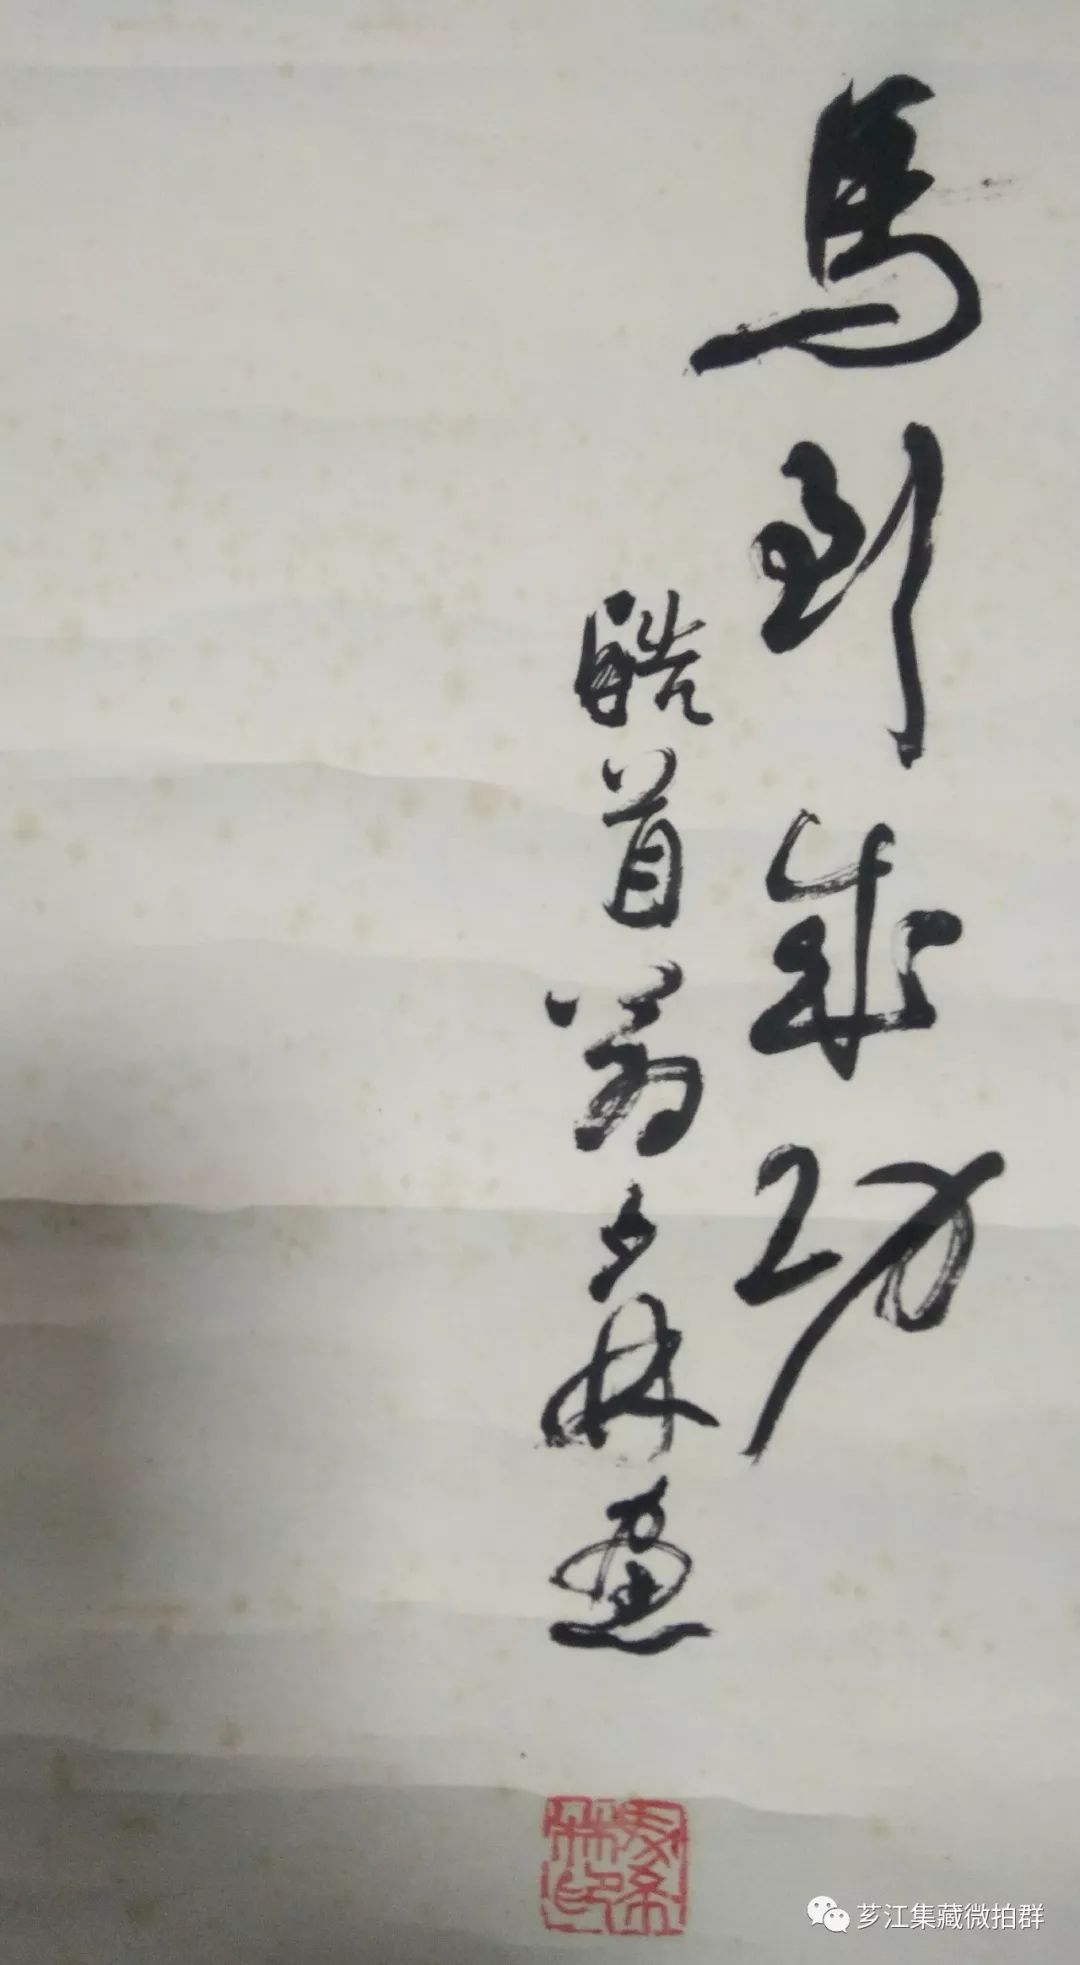 馬到成功
皓首翁
林画
芗江集藏微拍群